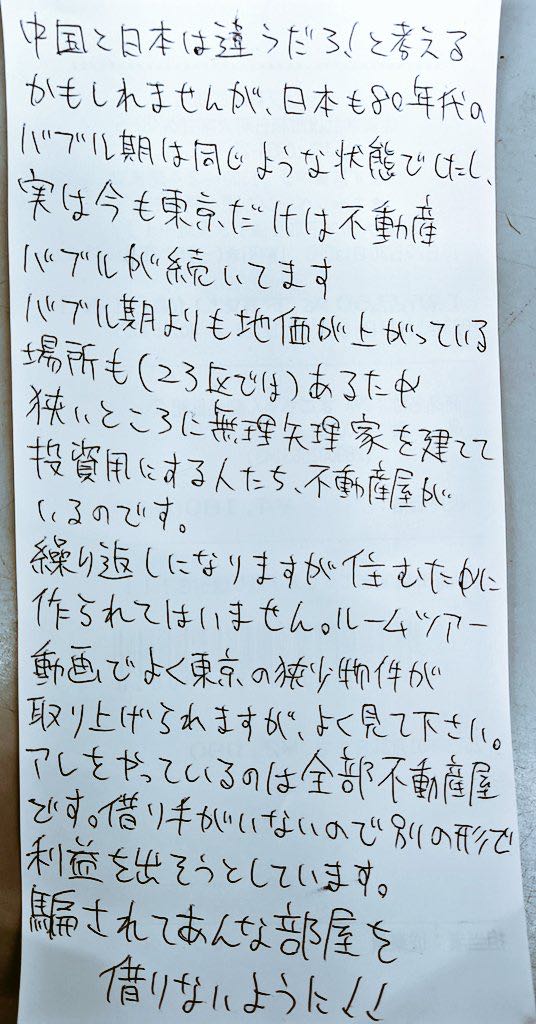 中国と日本は違うだろ!と考える
かもしれませんが、日本も80年代の
バブル期は同じような状態でしたし、
実は今も東京だけは不動産
バブルが続いてます
バブル期よりも地価が上がっている
場所も(23区では)あるため
狭いところに無理矢理家を建てて
投資用にする人たち、不動産屋が
いるのです。
繰り返しになりますが住むために
作られてはいません。ルームツアー
動画でよく東京の狭少物件が
取り上げられますが、よく見て下さい。
アレをやっているのは全部不動産屋
です。借り手がいないので別の形で
利益を出そうとしています。
騙されてあんな部屋を
借りないように!!